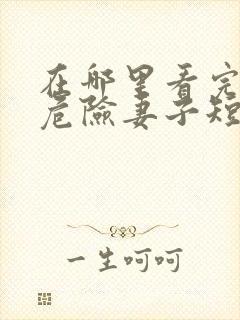 在哪里看完
危险妻子短
一生呵呵